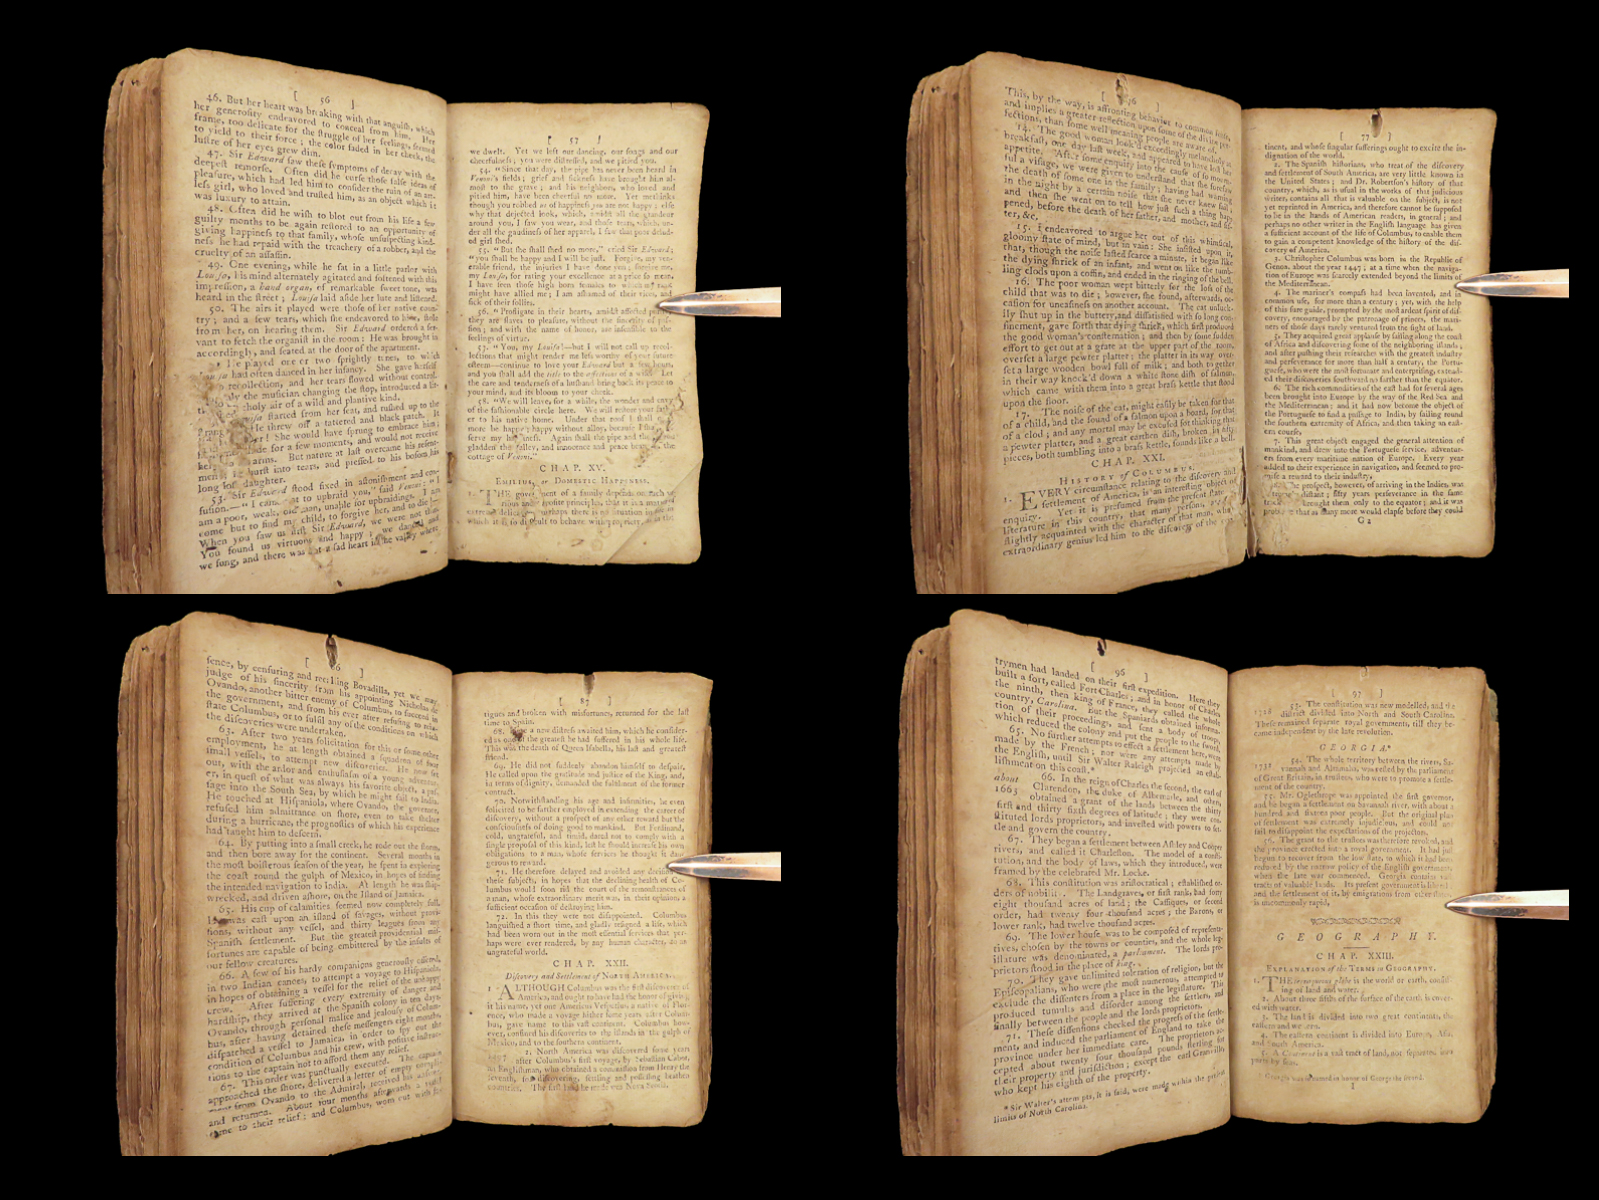 [ 56 ]
46. But her heart was breaking with that anguiſh, which
her generoſity endeavored to conceal from him. Her
frame, too delicate for the ſtruggle of her feelings, ſeemed
to yield to their force ; the color faded in her cheek, the
luſtre of her eyes grew dim.
47. Sir Edward ſaw theſe ſymptoms of decay with the
deepeſt remorſe. Often did he curſe thoſe falſe ideas of
pleaſure, which had led him to conſider the ruin of an art-
leſs girl, who loved and truſted him, as an object which it
was luxury to attain.
48. Often did he wiſh to blot out from his life a few
guilty months to be again reſtored to an opportunity of
giving happineſs to that family, whoſe unſuſpecting kind-
neſs he had repaid with the treachery of a robber, and the
cruelty of an aſſaſſin.
49. One evening, while he ſat in a little parlor with
Louiſa, his mind alternately agitated and ſoftened with this
impreſſion, a hand organ, of remarkable ſweet tone, was
heard in the ſtreet ; Louiſa laid aſide her lute and liſtened.
50. The airs it played were thoſe of her native coun-
try ; and a few tears, which ſhe endeavored to hide, ſtole
from her, on hearing them. Sir Edward ordered a ſer-
vant to fetch the organiſt in the room : He was brought in
accordingly, and ſeated at the door of the apartment.
He played one or two ſprightly tunes, to which
had often danced in her infancy. She gave herſelf
recollection, and her tears flowed without control.
the muſician changing the ſtop, introduced a lit-
choly air of a wild and plantive kind.
ſtarted from her ſeat, and ruſhed up to the
He threw off a tattered and black patch. It
! She would have ſprung to embrace him ;
for a few moments, and would not receive
arms. But nature at laſt overcame his reſent-
burſt into tears, and preſſed to his boſom his
long loſt daughter.
53. Sir Edward ſtood fixed in aſtoniſhment and con-
fuſion.—" I come not to upbraid you," ſaid Venoni ; " I
am a poor, weak, old man, unable for upbraidings. I am
come but to find my child, to forgive her, and to die !—
When you ſaw us firſt Sir Edward, we were not thus.
You found us virtuous and happy ; we danced and
we ſung, and there was not a ſad heart in the valley where
[ 57 ]
we dwelt. Yet we left our dancing, our ſongs and our
cheerfulneſs ; you were diſtreſſed, and we pitied you.
54. " Since that day, the pipe has never been heard in
Venoni's fields ; grief and ſickneſs have brought him al-
moſt to the grave ; and his neighbors, who loved and
pitied him, have been cheerful no more. Yet methinks
though you robbed us of happineſs you are not happy ; elſe
why that dejected look, which, amidſt all the grandeur
around you, I ſaw you wear, and thoſe tears, which, un-
der all the gaudineſs of her apparel, I ſaw that poor delud-
ed girl ſhed.
55. " But ſhe ſhall ſhed no more," cried Sir Edward ;
" you ſhall be happy and I will be juſt. Forgive, my ven-
erable friend, the injuries I have done you ; forgive me,
my Louiſa, for rating your excellence at a price ſo mean.
I have ſeen thoſe high born females to which my rank
might have allied me ; I am aſhamed of their vices, and
ſick of their follies.
56. " Profligate in their hearts, amidſt affected purity
they are ſlaves to pleaſure, without the ſincerity of paſ-
ſion ; and with the name of honor, are inſenſible to the
feelings of virtue.
57. " You, my Louiſa!—but I will not call up recol-
lections that might render me leſs worthy of your future
eſteem—continue to love your Edward but a few hours,
and you ſhall add the title to the affections of a wife. Let
the care and tenderneſs of a huſband bring back its peace to
your mind, and its bloom to your cheek.
58. " We will leave, for a while, the wonder and envy
of the faſhionable circle here. We will reſtore your fath-
er to his native home. Under that roof I ſhall
more be happy ; happy without alloy, becauſe I
ſerve my happineſs. Again ſhall the pipe and the
gladden the valley, and innocence and peace beam on the
cottage of Venoni."
CHAP. XV.
EMILIUS, or DOMESTIC HAPPINESS.
1. THE government of a family depends on ſuch
rious and oppoſite principles, that it is a matter of
extreme delicacy perhaps there is no ſituation in life
which it is ſo difficult to behave with propriety, as in the
[ 76 ]
This, by the way, is affronting behavior to common ſenſe,
and implies a greater reflection upon ſome of the divine per-
fections, than ſome well meaning people are aware of.
14. The good woman look'd exceedingly melancholy at
breakfaſt, one day laſt week, and appeared to have loſt her
appetite. After ſome enquiry into the cauſe of ſo mourn-
ful a viſage, we were given to underſtand that ſhe foreſaw
the death of ſome one in the family ; having had warning
in the night by a certain noiſe that ſhe never knew fail ;
and then ſhe went on to tell how juſt ſuch a thing hap-
pened, before the death of her father, and mother, and ſiſ-
ter, &c.
15. I endeavored to argue her out of this whimſical,
gloomy ſtate of mind, but in vain : She inſiſted upon it,
that, though the noiſe laſted ſcarce a minute, it began like
the dying ſhriek of an infant, and went on like the tumb-
ling clods upon a coffin, and ended in the ringing of the bell.
16. The poor woman wept bitterly for the loſs of the
child that was to die ; however, ſhe found, afterwards, oc-
caſion for uneaſineſs on another account. The cat unluck-
ily ſhut up in the buttery, and diſſatisfied with ſo long con-
finement, gave forth that dying ſhriek, which firſt produced
the good woman's conſternation ; and then by ſome ſudden
effort to get out at a grate at the upper part of the room,
overſet a large pewter platter ; the platter in its way over-
ſet a large wooden bowl full of milk ; and both together
in their way knock'd down a white ſtone diſh of ſalmon,
which came with them into a great braſs kettle that ſtood
upon the floor.
17. The noiſe of the cat, might eaſily be taken for that
of a child, and the ſound of a ſalmon upon a board, for that
of a clod ; and any mortal may be excuſed for thinking that
a pewter platter, and a great earthen diſh, broken in fifty
pieces, both tumbling into a braſs kettle, ſounds like a bell.
CHAP. XXI.
HISTORY of COLUMBUS.
1. EVERY circumſtance relating to the diſcovery and
ſettlement of America, is an intereſting object of
enquiry. Yet it is preſumed from the preſent ſtate of
literature in this country, that many perſons, are but
ſlightly acquainted with the character of that man, whoſe
extraordinary genius led him to the diſcovery of the con-
[ 77 ]
tinent, and whoſe ſingular ſufferings ought to excite the in-
dignation of the world.
2. The Spaniſh hiſtorians, who treat of the diſcovery
and ſettlement of South America, are very little known in
the United States ; and Dr. Robertſon's hiſtory of that
country, which, as is uſual in the works of that judicious
writer, contains all that is valuable on the ſubject, is not
yet reprinted in America, and therefore cannot be ſuppoſed
to be in the hands of American readers, in general ; and
perhaps no other writer in the Engliſh language has given
a ſufficient account of the life of Columbus, to enable them
to gain a competent knowledge of the hiſtory of the diſ-
covery of America.
3. Chriſtopher Columbus was born in the Republic of
Genoa, about the year 1447 ; at a time when the naviga-
tion of Europe was ſcarcely extended beyond the limits of
the Mediterranean.
4. The mariner's compaſs had been invented, and in
common uſe, for more than a century ; yet, with the help
of this ſure guide, prompted by the moſt ardent ſpirit of diſ-
covery, encouraged by the patronage of princes, the mari-
ners of thoſe days rarely ventured from the ſight of land.
5. They acquired great applauſe by ſailing along the coaſt
of Africa and diſcovering ſome of the neighboring iſlands ;
and after puſhing their reſearches with the greateſt induſtry
and perſeverance for more than half a century, the Portu-
gueſe, who were the moſt fortunate and enterpriſing, extend-
ed their diſcoveries ſouthward no farther than the equator.
6. The rich commodities of the eaſt had for ſeveral ages
been brought into Europe by the way of the Red Sea and
the Mediterranean ; and it had now become the object of
the Portugueſe to find a paſſage to India, by ſailing round
the ſouthern extremity of Africa, and then taking an eaſt-
ern courſe.
7. This great object engaged the general attention of
mankind, and drew into the Portugueſe ſervice, adventur-
ers from every maritime nation of Europe. Every year
added to their experience in navigation, and ſeemed to pro-
miſe a reward to their induſtry.
proſpect, however, of arriving in the Indies, was
diſtant ; fifty years perſeverance in the ſame
brought them only to the equator ; and it was
that as many more would elapſe before they could
G 2
[ 86 ]
ſence, by cenſuring and recalling Bovadilla, yet we may
judge of his ſincerity from his appointing Nicholas de
Ovando, another bitter enemy of Columbus, to ſucceed in
the government, and from his ever after refuſing to rein-
ſtate Columbus, or to fulfil any of the conditions on which
the diſcoveries were undertaken.
63. After two years ſolicitation for this or ſome other
employment, he at length obtained a ſquadron of four
ſmall veſſels, to attempt new diſcoveries. He now ſet
out, with the ardor and enthuſiaſm of a young adventur-
er, in queſt of what was always his favorite object, a paſ-
ſage into the South Sea, by which he might ſail to India.
He touched at Hiſpaniola, where Ovando, the governor,
refuſed him admittance on ſhore, even to take ſhelter
during a hurricane, the prognoſtics of which his experience
had taught him to diſcern.
64. By putting into a ſmall creek, he rode out the ſtorm,
and then bore away for the continent. Several months in
the moſt boiſterous ſeaſon of the year, he ſpent in exploring
the coaſt round the gulph of Mexico, in hopes of finding
the intended navigation to India. At length he was ſhip-
wrecked, and driven aſhore, on the Iſland of Jamaica.
65. His cup of calamities ſeemed now completely full.
He was caſt upon an iſland of ſavages, without provi-
ſions, without any veſſel, and thirty leagues from any
Spaniſh ſettlement. But the greateſt providential miſ-
fortunes are capable of being embittered by the inſults of
our fellow creatures.
66. A few of his hardy companions generouſly offered,
in two Indian canoes, to attempt a voyage to Hiſpaniola,
in hopes of obtaining a veſſel for the relief of the unhappy
crew. After ſuffering every extremity of danger and
hardſhip, they arrived at the Spaniſh colony in ten days.
Ovando, through perſonal malice and jealouſy of Colum-
bus, after having detained theſe meſſengers eight months,
diſpatched a veſſel to Jamaica, in order to ſpy out the
condition of Columbus and his crew, with poſitive inſtruc-
tions to the captain not to afford them any relief.
67. This order was punctually executed. The captain
approached the ſhore, delivered a letter of empty compli-
ment from Ovando to the Admiral, received his anſwer,
and returned. About four months afterwards a veſſel
came to their relief ; and Columbus, worn out with fa-
[ 87 ]
tigues and broken with misfortunes, returned for the laſt
time to Spain.
68. Here a new diſtreſs awaited him, which he conſider-
ed as one of the greateſt he had ſuffered in his whole life.
This was the death of Queen Iſabella, his laſt and greateſt
friend.
69. He did not ſuddenly abandon himſelf to deſpair.
He called upon the gratitude and juſtice of the King, and,
in terms of dignity, demanded the fulfilment of the former
contract.
70. Notwithſtanding his age and infirmities, he even
ſolicited to be further employed in extending the career of
diſcovery, without a proſpect of any other reward but the
conſciouſneſs of doing good to mankind. But Ferdinand,
cold, ungrateful, and timid, dared not to comply with a
ſingle propoſal of this kind, leſt he ſhould increaſe his own
obligations to a man, whoſe ſervices he thought it dan-
gerous to reward.
71. He therefore delayed and avoided any deciſion
theſe ſubjects, in hopes that the declining health of Co-
lumbus would ſoon rid the court of the remonſtrances of
a man, whoſe extraordinary merit was, in their opinion, a
ſufficient occaſion of deſtroying him.
72. In this they were not diſappointed. Columbus
languiſhed a ſhort time, and gladly reſigned a life, which
had been worn out in the moſt eſſential ſervices that per-
haps were ever rendered, by any human character, to an
ungrateful world.
CHAP. XXII.
Diſcovery and Settlement of NORTH AMERICA.
1 ALTHOUGH Columbus was the firſt diſcoverer of
America, and ought to have had the honor of giving
it his name, yet one Americus Veſputius, a native of Flor-
ence, who made a voyage hither ſome years after Colum-
bus, gave name to this vaſt continent. Columbus how-
ever, confined his diſcoveries to the iſlands in the gulph of
Mexico, and to the ſouthern continent.
2. North America was diſcovered ſome years
1497 after Columbus's firſt voyage, by Sebaſtian Cabot,
an Engliſhman, who obtained a commiſſion from Henry the
ſeventh, for diſcovering, ſettling and poſſeſſing heathen
countries. The firſt land he made was Nova Scotia.
[ 96 ]
trymen had landed on their firſt expedition. Here they
built a fort, called Fort Charles ; and in honor of Charles
the ninth, then king of France, they called the whole
country, Carolina. But the Spaniards obtained informa-
tion of their proceedings, and ſent a body of troops,
which reduced the colony and put the people to the ſword.
65. No further attempts to effect a ſettlement here, were
made by the French ; nor were any attempts made by
the Engliſh, until Sir Walter Raleigh projected an eſtab-
liſhment on this coaſt.*
about 66. In the reign of Charles the ſecond, the earl of
1663 Clarendon, the duke of Albemarle, and others,
obtained a grant of the lands between the thirty
firſt and thirty ſixth degrees of latitude ; they were con-
ſtituted lords proprietors, and inveſted with powers to ſet-
tle and govern the country.
67. They began a ſettlement between Aſhley and Cooper
rivers, and called it Charleſton. The model of a conſti-
tution, and the body of laws, which they introduced, were
framed by the celebrated Mr. Locke.
68. This conſtitution was ariſtocratical ; eſtabliſhed or-
ders of nobility. The Landgrave, or firſt rank, had forty
eight thouſand acres of land ; the Caſſiques, or ſecond
order, had twenty four thouſand acres ; the Barons, or
lower rank, had twelve thouſand acres.
69. The lower houſe was to be compoſed of repreſenta-
tives, choſen by the towns or counties, and the whole leg-
iſlature was denominated, a parliament. The lords pro-
prietors ſtood in the place of king.
70. They gave unlimited toleration of religion, but the
Epiſcopalians, who were the moſt numerous, attempted to
exclude the diſſenters from a place in the legiſlature. This
produced tumults and diſorder among the ſettlers, and
finally between the people and the lords proprietors.
71. Theſe diſſentions checked the progreſs of the ſettle-
ment, and induced the parliament of England to take the
province under her immediate care. The proprietors ac-
cepted about twenty four thouſand pounds ſterling for
their property and juriſdiction ; except the earl Granville,
who kept his eighth of the property.
* Sir Walter's attempts, it is ſaid, were made within the preſent
limits of North Carolina.
[ 97 ]
53. The conſtitution was new modelled, and the
1728 diſtrict divided into North and South Carolina.
Theſe remained ſeparate royal government, till they be-
came independent by the late revolution.
GEORGIA.*
54. The whole territory between the rivers, Sa-
1732 vannah and Altamaha, was veſted by the parliament
of Great Britain, in truſtees, who were to promote a ſettle-
ment of the country.
55. Mr. Oglethorpe was appointed the firſt governor,
and he began a ſettlement on Savannah river, with about a
hundred and ſixteen poor people. But the original plan
of ſettlement was extremely injudicious, and could not
fail to diſappoint the expectations of the projectors.
56. The grant to the truſtees was therefore revoked, and
the province erected into a royal government. It had juſt
begun to recover from the low ſtate, to which it had been
reduced by the narrow policy of the Engliſh government,
when the late war commenced. Georgia contains vaſt
tracts of valuable lands. Its preſent government is liberal ;
and the ſettlement of it, by emigrations from other ſtates,
is uncommonly rapid.
GEOGRAPHY.
CHAP. XXIII.
EXPLANATION of the TERMS in GEOGRAPHY.
1. THE terraqueous globe is the world or earth, conſiſt-
ing of land and water.
2. About three fifths of the ſurface of the earth is cover-
ed with water.
3. The land is divided into two great continents, the
eaſtern and weſtern.
4. The eaſtern continent is divided into Europe, Aſia,
and South America.
5. A Continent is a vaſt tract of land, not ſeparated into
parts by ſeas.
Georgia was ſo named in honor of George the ſecond.
I